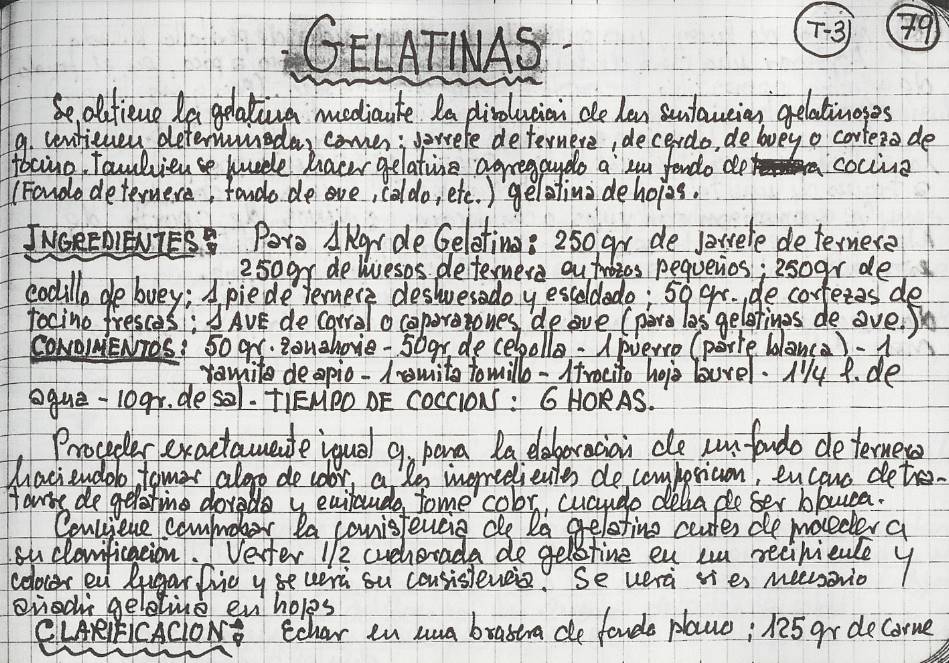 T-3 79
- GELATINAS -
Se obtiene la gelatina mediante la disolucion de las sustancias gelatinosas
q. contienen determinadas carnes: jarrete de ternera, de cerdo, de buey o corteza de
tocino. Tambien se puede hacer gelatina agregando a un fondo de cocina
(Fondo de ternera, fondo de ave, caldo, etc.) gelatina de hojas.
INGREDIENTES: Para 1 Kgr de Gelatina: 250 gr de jarrete de ternera
250 gr de huesos de ternera en trozos pequeños; 250 gr de
codillo de buey; 1 pie de ternera deshuesado y escaldado; 50 gr. de cortezas de
tocino frescas; 1 AVE de corral o caparazones de ave (para las gelatinas de ave.)
CONDIMENTOS: 50 gr. zanahoria - 50 gr de cebolla - 1 puerro (parte blanca) - 1
ramita de apio - 1 ramita tomillo - 1 trocito hoja laurel - 1 1/4 l. de
agua - 10 gr. de sal. - TIEMPO DE COCCION: 6 HORAS.
Proceder exactamente igual q. para la elaboración de un fondo de ternera
haciendolo tomar algo de color, a los ingredientes de composicion, en caso de tra-
tarse de gelatina dorada y evitando tome color, cuando deba de ser blanca.
Conviene comprobar la consistencia de la gelatina antes de proceder a
su clarificacion. Verter 1/2 cucharada de gelatina en un recipiente y
colocar en lugar frio y se verá su consistencia. Se verá si es necesario
añadir gelatina en hojas
CLARIFICACION: Echar en una brasera de fondo plano; 125 gr de carne